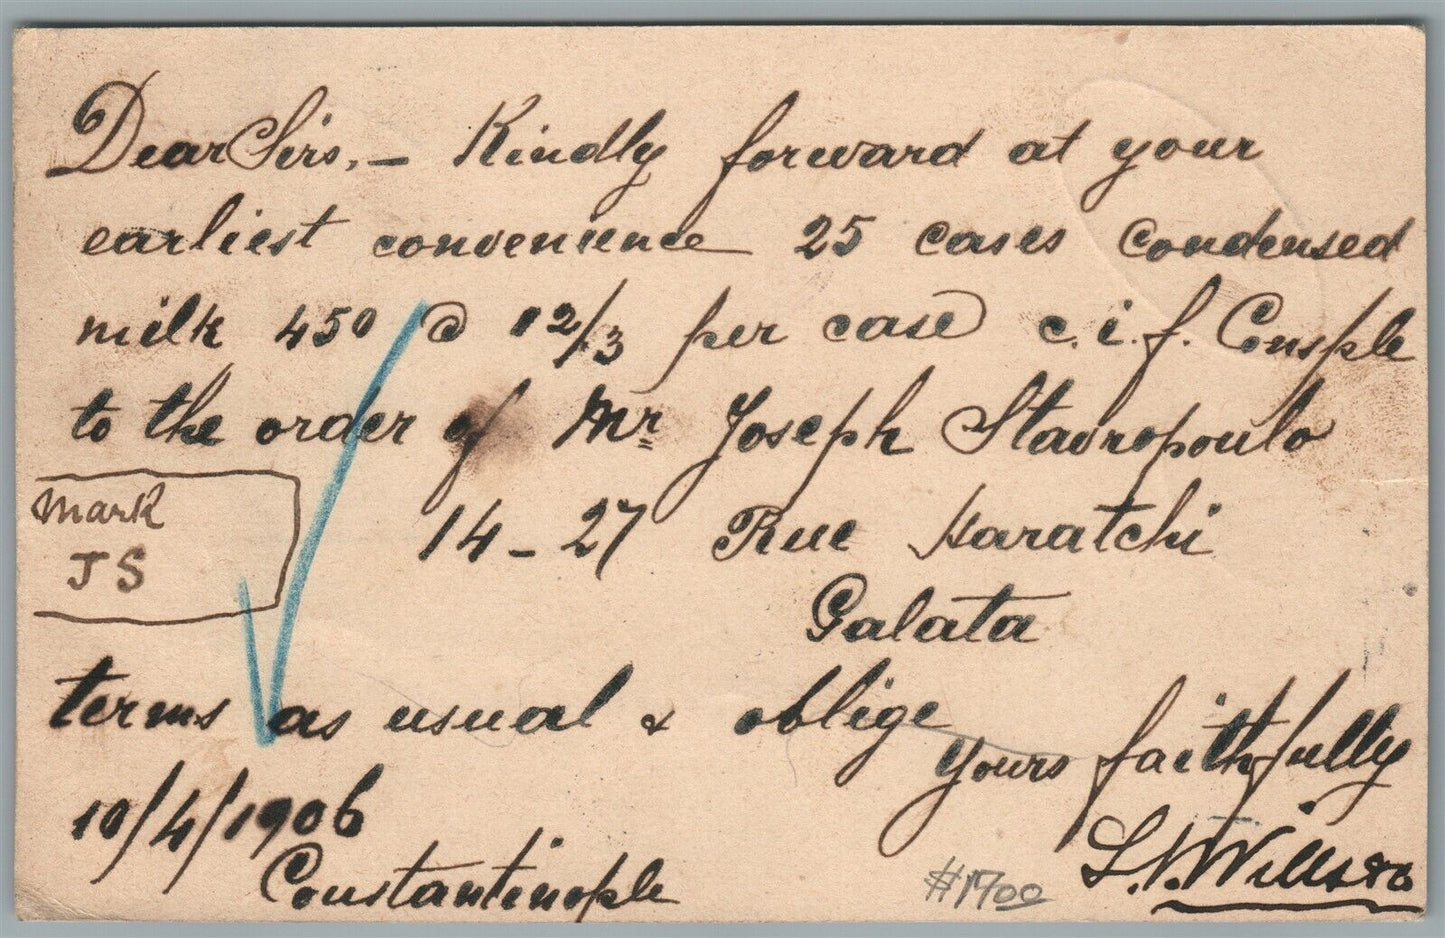 Dear Sirs, — Kindly forward at your
earliest convenience 25 cases condensed
milk 450 @ 12/3 per case c.i.f. Consple
to the order of Mr Joseph Stavropoulo
14 - 27 Rue Karatchi
Galata
Mark
JS
terms as usual & oblige
yours faithfully
10/4/1906
Constantinople
Wills & Co
#1700